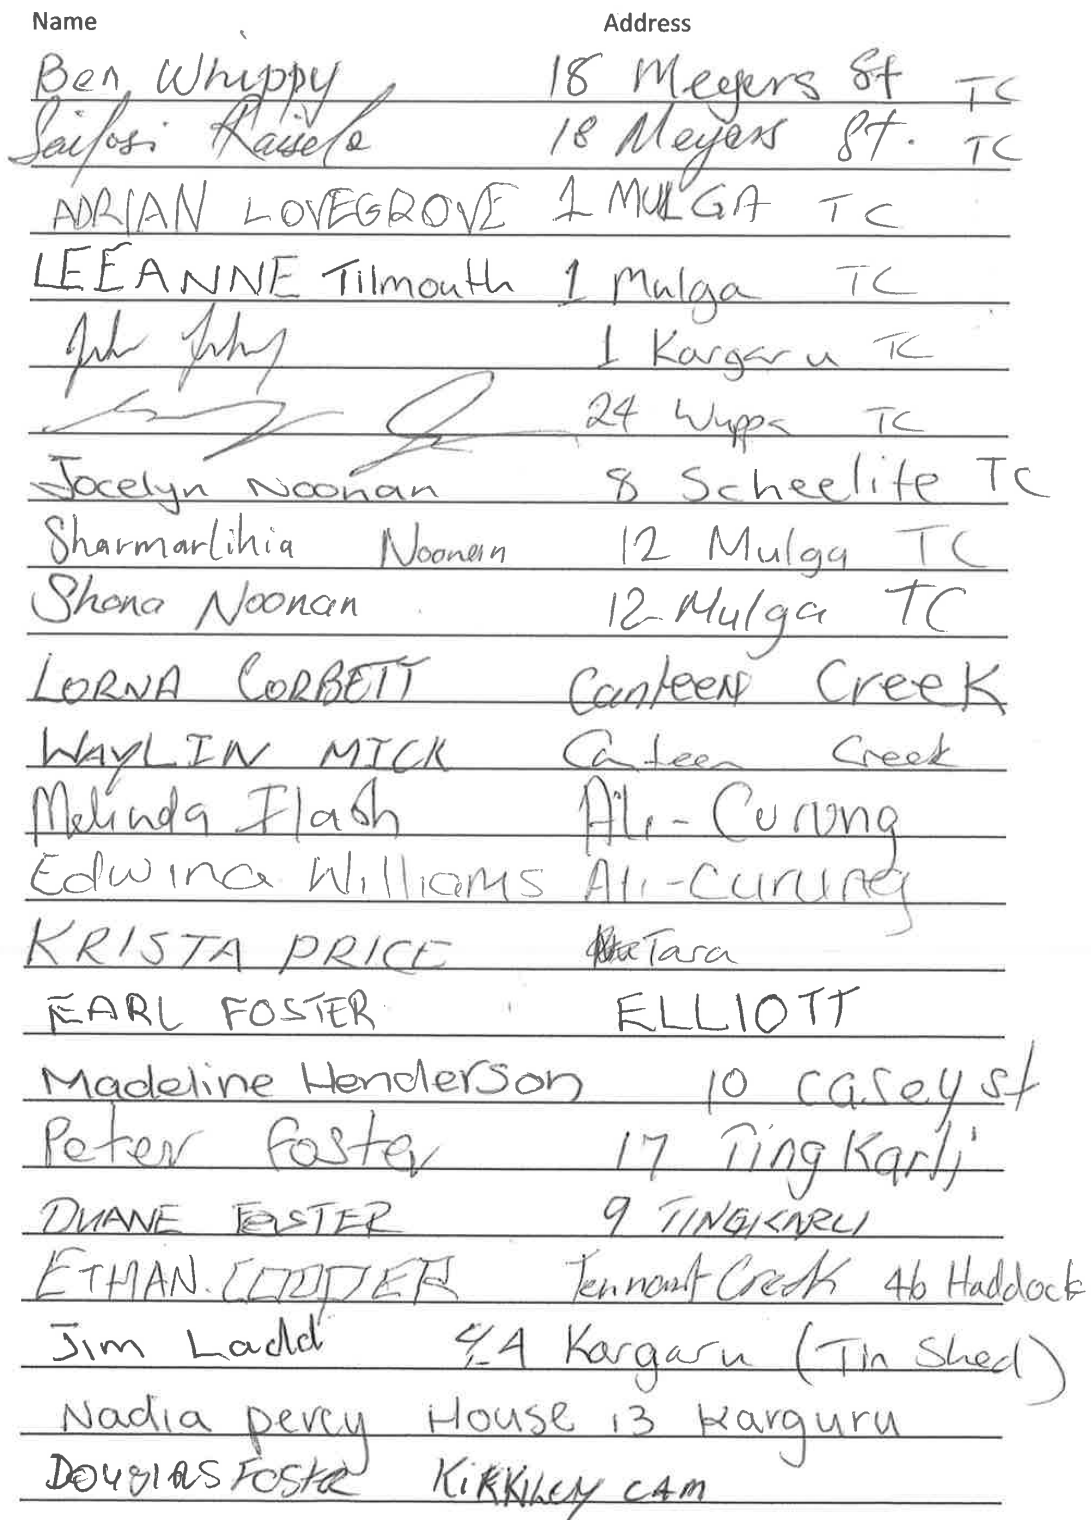 Name Address
Ben Whippy 18 Meyers St TC
Saifosi 18 Meyers St. TC
ADRIAN LOVEGROVE 1 MULGA TC
LEEANNE Tilmouth 1 Mulga TC
1 Kargaru TC
24 Wuppa TC
Jocelyn Noonan 8 Scheelite TC
Sharmarlihia Noonan 12 Mulga TC
Shona Noonan 12 Mulga TC
LORNA CORBETT Canteen Creek
WAYLIN MICK Canteen Creek
Melinda Flash Ali-Curung
Edwina Williams Ali-Curung
KRISTA PRICE Tara
EARL FOSTER ELLIOTT
Madeline Henderson 10 Casey st
Peter Foster 17 Tingkarli
DUANE FOSTER 9 TINGKARLI
ETHAN. COOPER Tennant Creek 46 Haddock
Jim Ladd 4 Kargaru (Tin Shed)
Nadia percy House 13 Karguru
Douglas Foster CAM